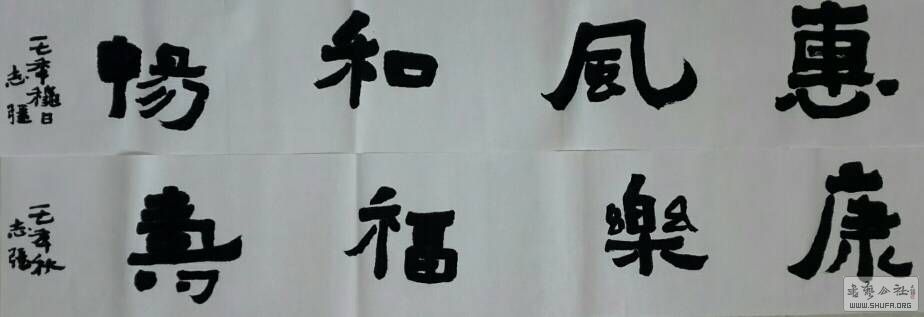 惠風和暢
一七年穐日
志彊
康樂福壽
一七年秋
志强
書藝公社
WWW.SHUFA.ORG